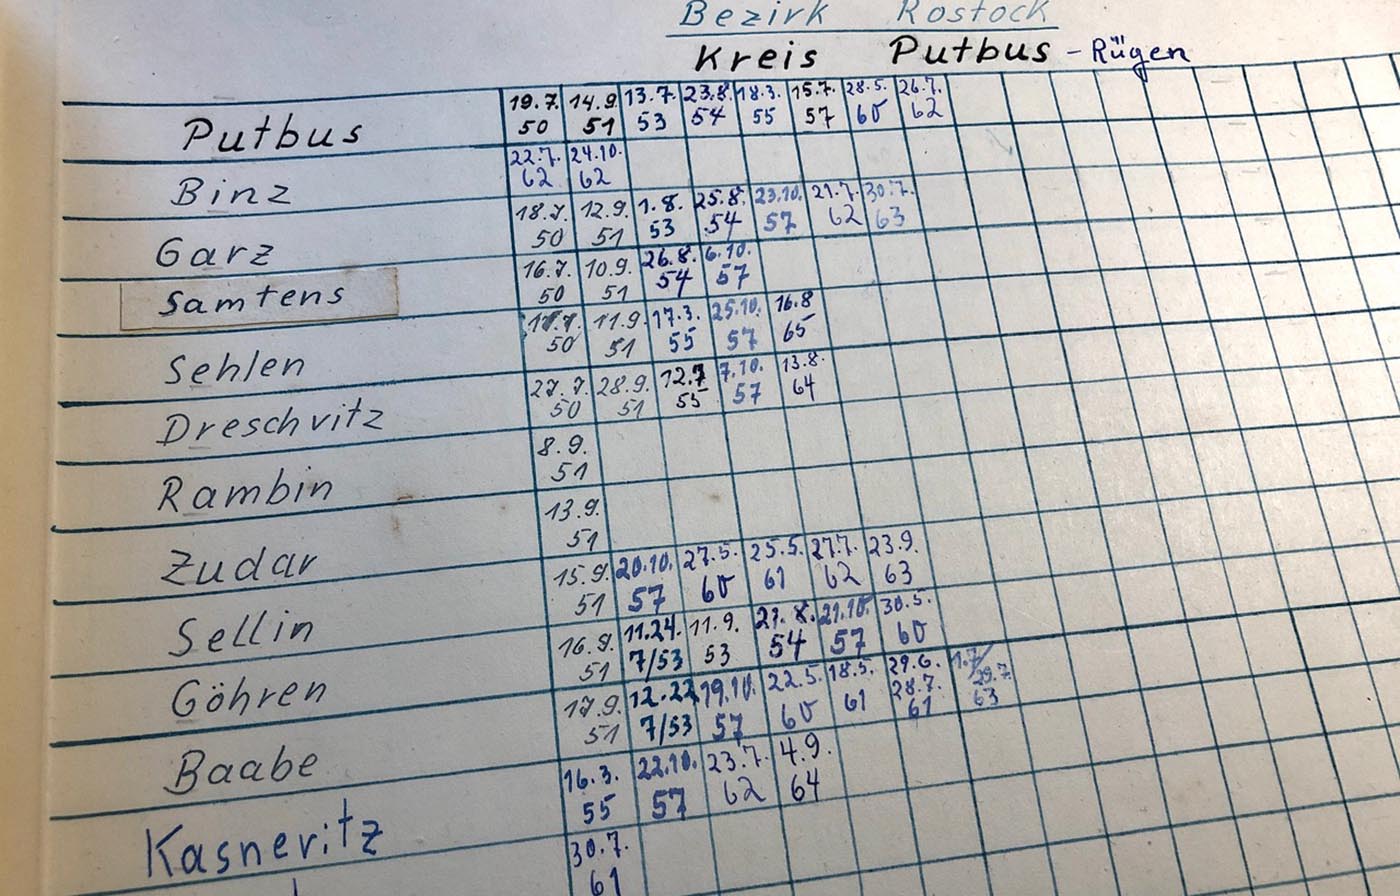 Bezirk Rostock
Kreis Putbus - Rügen
19.7. 14.9. 13.7. 23.8. 18.3. 15.7. 28.5. 26.7.
Putbus 50 51 53 54 55 57 60 62
22.7. 24.10.
Binz 62 62
18.7. 12.9. 1.8. 25.8. 23.10. 21.7. 30.7.
Garz 50 51 53 54 57 62 63
16.7. 10.9. 26.8. 6.10.
Samtens 50 51 54 57
17.7. 11.9. 17.3. 25.10. 16.8
Sehlen 50 51 55 57 65
27.7. 28.9. 12.7 7.10. 13.8.
Dreschvitz 50 51 55 57 64
8.9.
Rambin 51
13.9.
Zudar 51
15.9. 20.10. 27.5. 25.5. 27.7. 23.9.
Sellin 51 57 60 61 62 63
16.9. 11.24. 11.9. 21.8. 21.10. 30.5.
Göhren 51 7/53 53 54 57 60
17.9. 12.22. 19.10. 22.5. 18.5. 29.6. 1.7/
28.7. 29.7.
Baabe 51 7/53 57 60 61 61 63
16.3. 22.10. 23.7. 4.9.
Kasneritz 55 57 62 64
30.7.
61